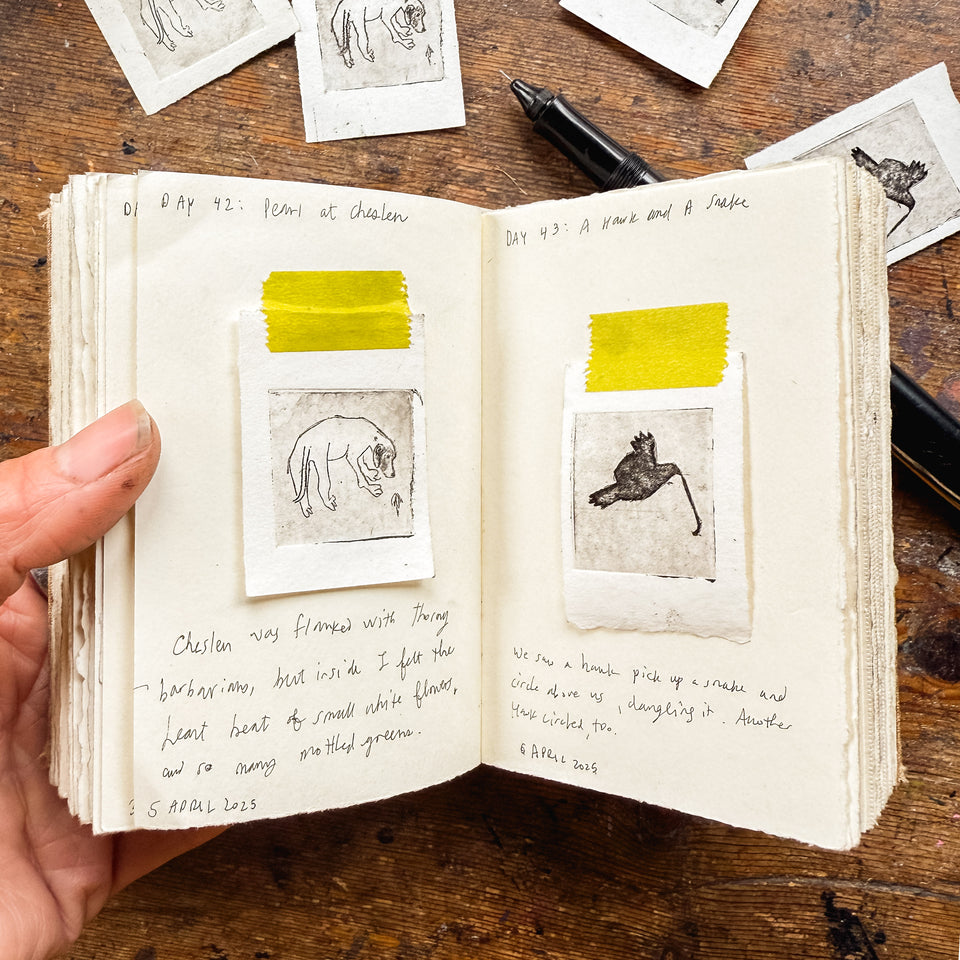 DAY 42: Pearl at Cheslen
Cheslen was flanked with thorny
barbarians, but inside I felt the
heart beat of small white flowers,
and so many mottled greens.
5 APRIL 2025
DAY 43: A Hawk and A Snake
We saw a hawk pick up a snake and
circle above us, dangling it. Another
Hawk circled, too.
6 APRIL 2025